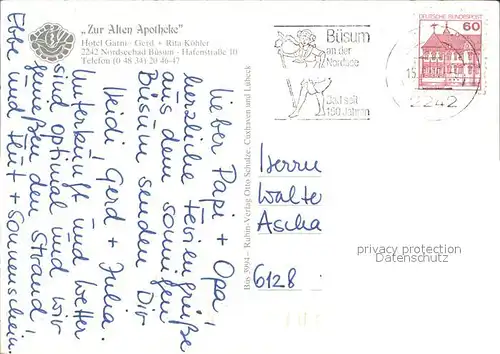 „Zur Alten Apotheke"
Hotel Garni · Gerd + Rita Köhler
2242 Nordseebad Büsum · Hafenstraße 10
Telefon (0 48 34) 20 46-47
Lieber Papi + Opa!
herzliche Feriengrüße
aus dem sonnigen
Büsum senden Dir
Heidi, Gerd + Julia.
Unterkunft und Wetter
sind optimal und wir
genießen den Strand!
Ebbe und Flut + Sonnenschein.
Rubin-Verlag Otto Schulze, Cuxhaven und Lübeck
Büsum
an der
Nordsee
Bad seit
150 Jahren
DEUTSCHE BUNDESPOST
60
2242
Herrn
Walter
Ascha
6128
privacy protection
Datenschutz